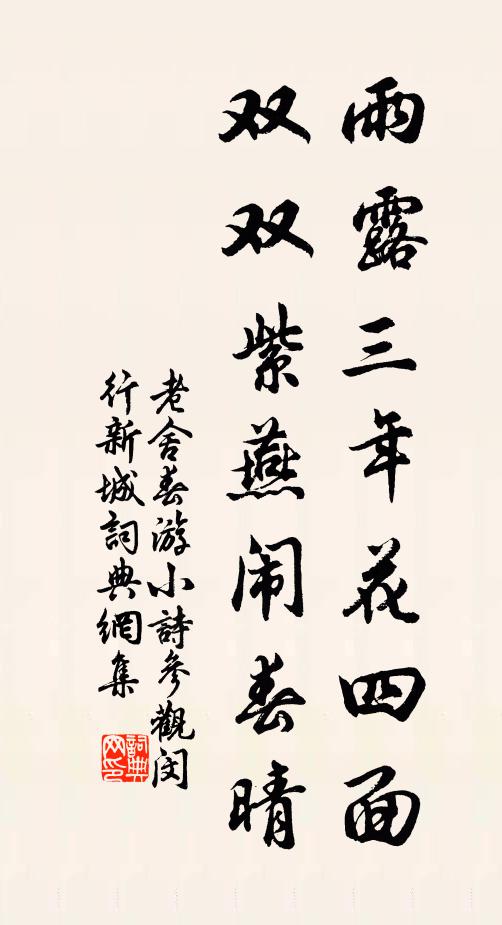 雨露三年花四面
双双紫燕闹春晴
老舍春游小詩參觀閔
行新城詞典網集
詞典
网印